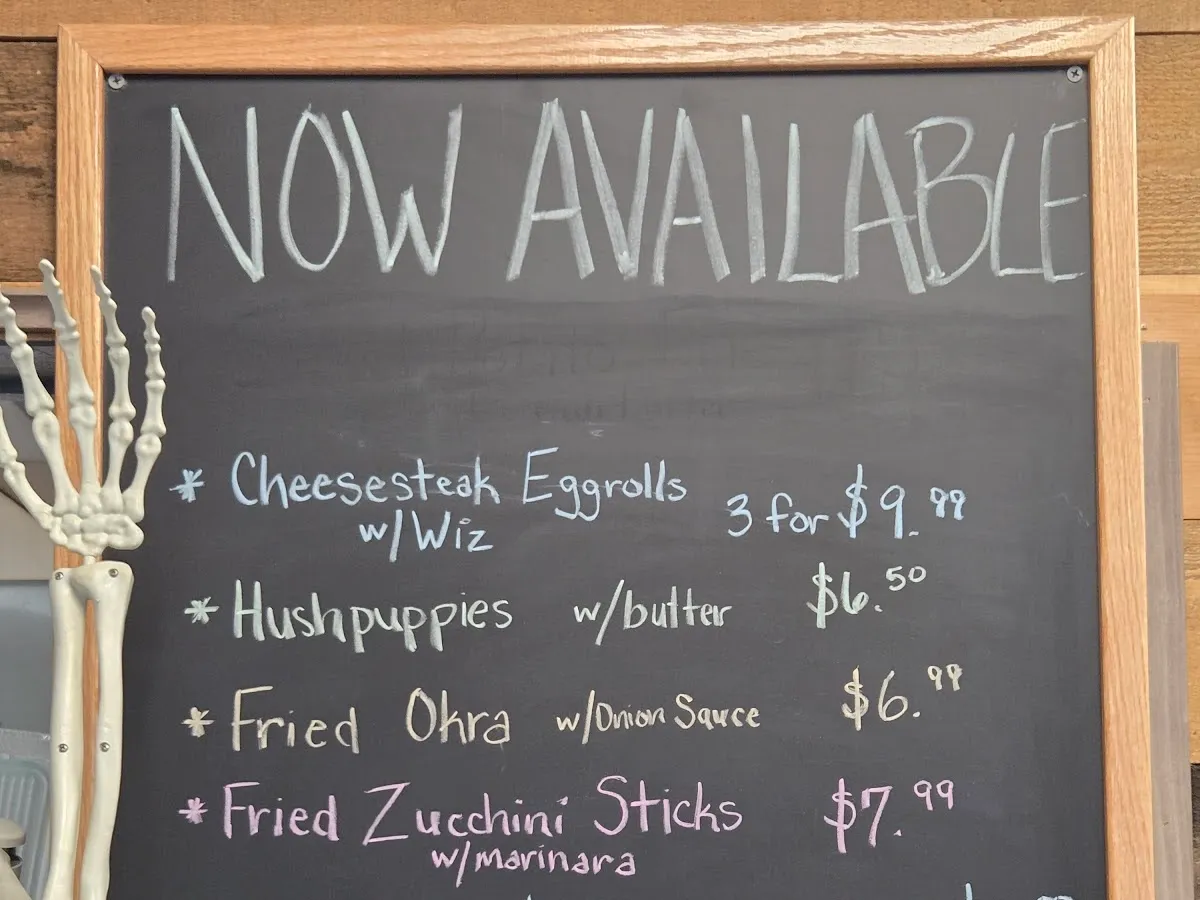 NOW AVAILABLE
* Cheesesteak Eggrolls 3 for $9.99
w/Wiz
* Hushpuppies w/butter $6.50
* Fried Okra w/Onion Sauce $6.99
* Fried Zucchini Sticks $7.99
w/marinara